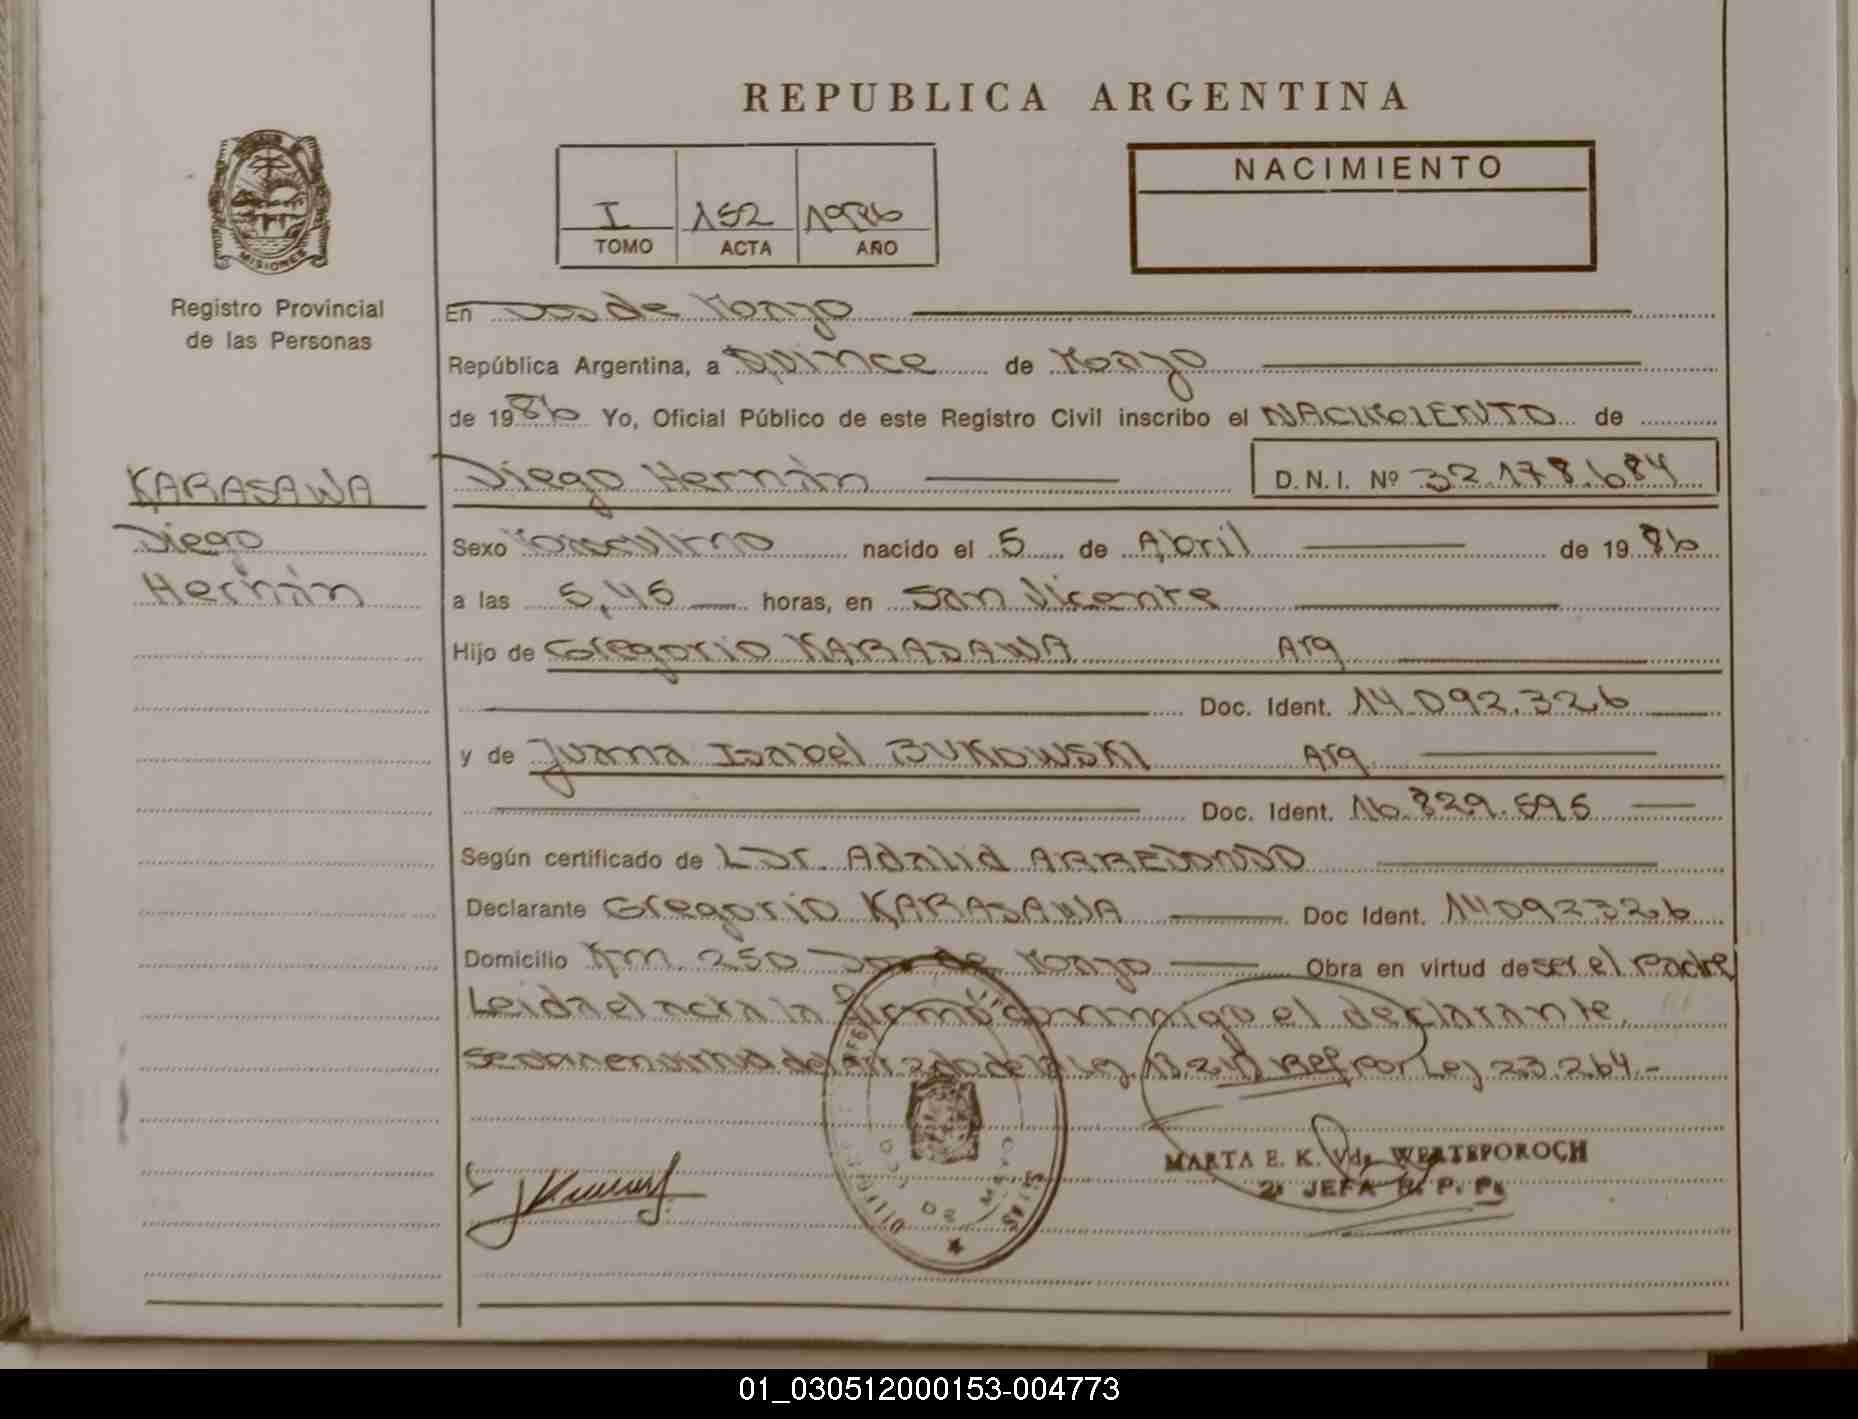 REPUBLICA ARGENTINA
NACIMIENTO
I 152 1986
TOMO ACTA AÑO
MISIONES
Registro Provincial
de las Personas
En Dos de Mayo
República Argentina, a Quince de Mayo
de 1986 Yo, Oficial Público de este Registro Civil inscribo el NACIMIENTO de
KARASAWA
Diego
Hernán
Diego Hernán D.N.I. Nº 32.178.684
Sexo Masculino nacido el 5 de Abril de 1986
a las 5,45 horas, en San Vicente
Hijo de Gregorio KARASAWA Arg
Doc. Ident. 14.092.326
y de Juana Isabel BUKOWSKI Arg
Doc. Ident. 16.829.595
Según certificado de L Dr. Adalid ARREDONDO
Declarante Gregorio KARASAWA Doc Ident. 14092326
Domicilio Km. 250 Dos de Mayo Obra en virtud de ser el Padre
Leida el acta la firmó conmigo el declarante.
del Art 2do de la Ley Ref por Ley 23.264.-
MARTA E. K. Vda. WERTEPOROCH
2ª JEFA R. P. P.
01_030512000153-004773